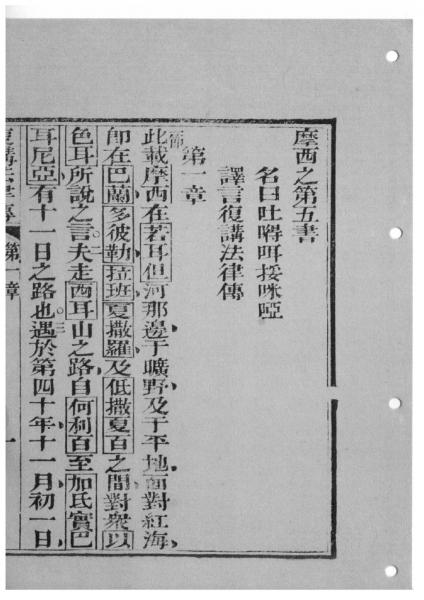 摩西之第五書
名曰吐嘚咡挼咪啞
譯言復講法律傳
第一章
此載摩西在若耳但河那邊于曠野及于平地面對紅海
即在巴蘭多彼勒拉班夏撒羅及低撒夏百之間對衆以
色耳所說之言夫走西耳山之路自何利百至加氐實巴
耳尼亞有十一日之路也三遇於第四十年十一月初一日
第一章